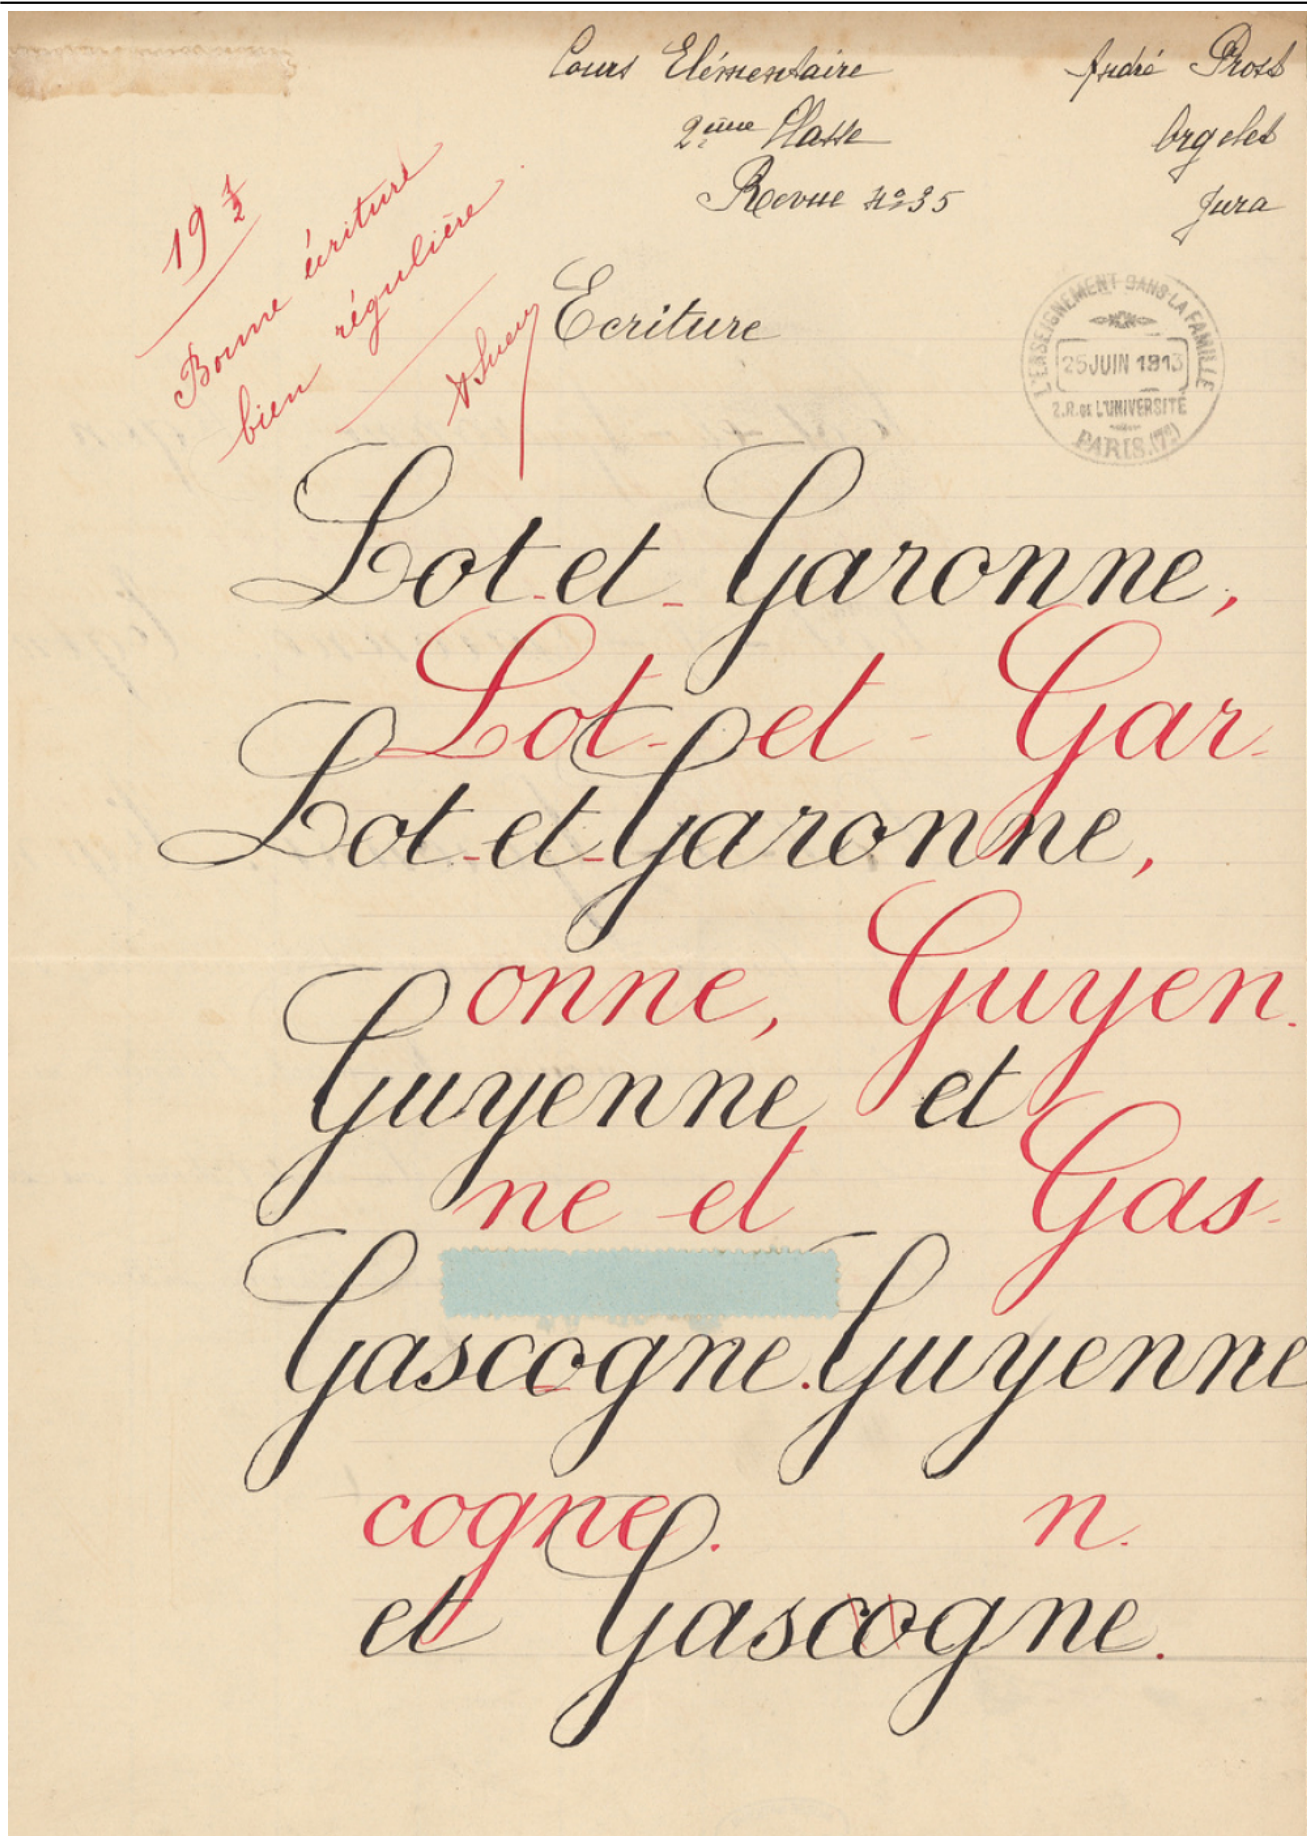 Cours Elémentaire
André Prost
2ème Classe
Orgelet
Revue No 35
Jura
19 1/2
Bonne écriture
bien régulière
Ecriture
L'ENSEIGNEMENT DANS LA FAMILLE
25 JUIN 1913
2.R. DE L'UNIVERSITÉ
PARIS.(7e)
Lot-et-Garonne,
Lot-et-Gar-
Lot-et-Garonne,
onne, Guyen.
Guyenne et
ne et Gas-
Gascogne. Guyenne
cogne. n.
et Gascogne.